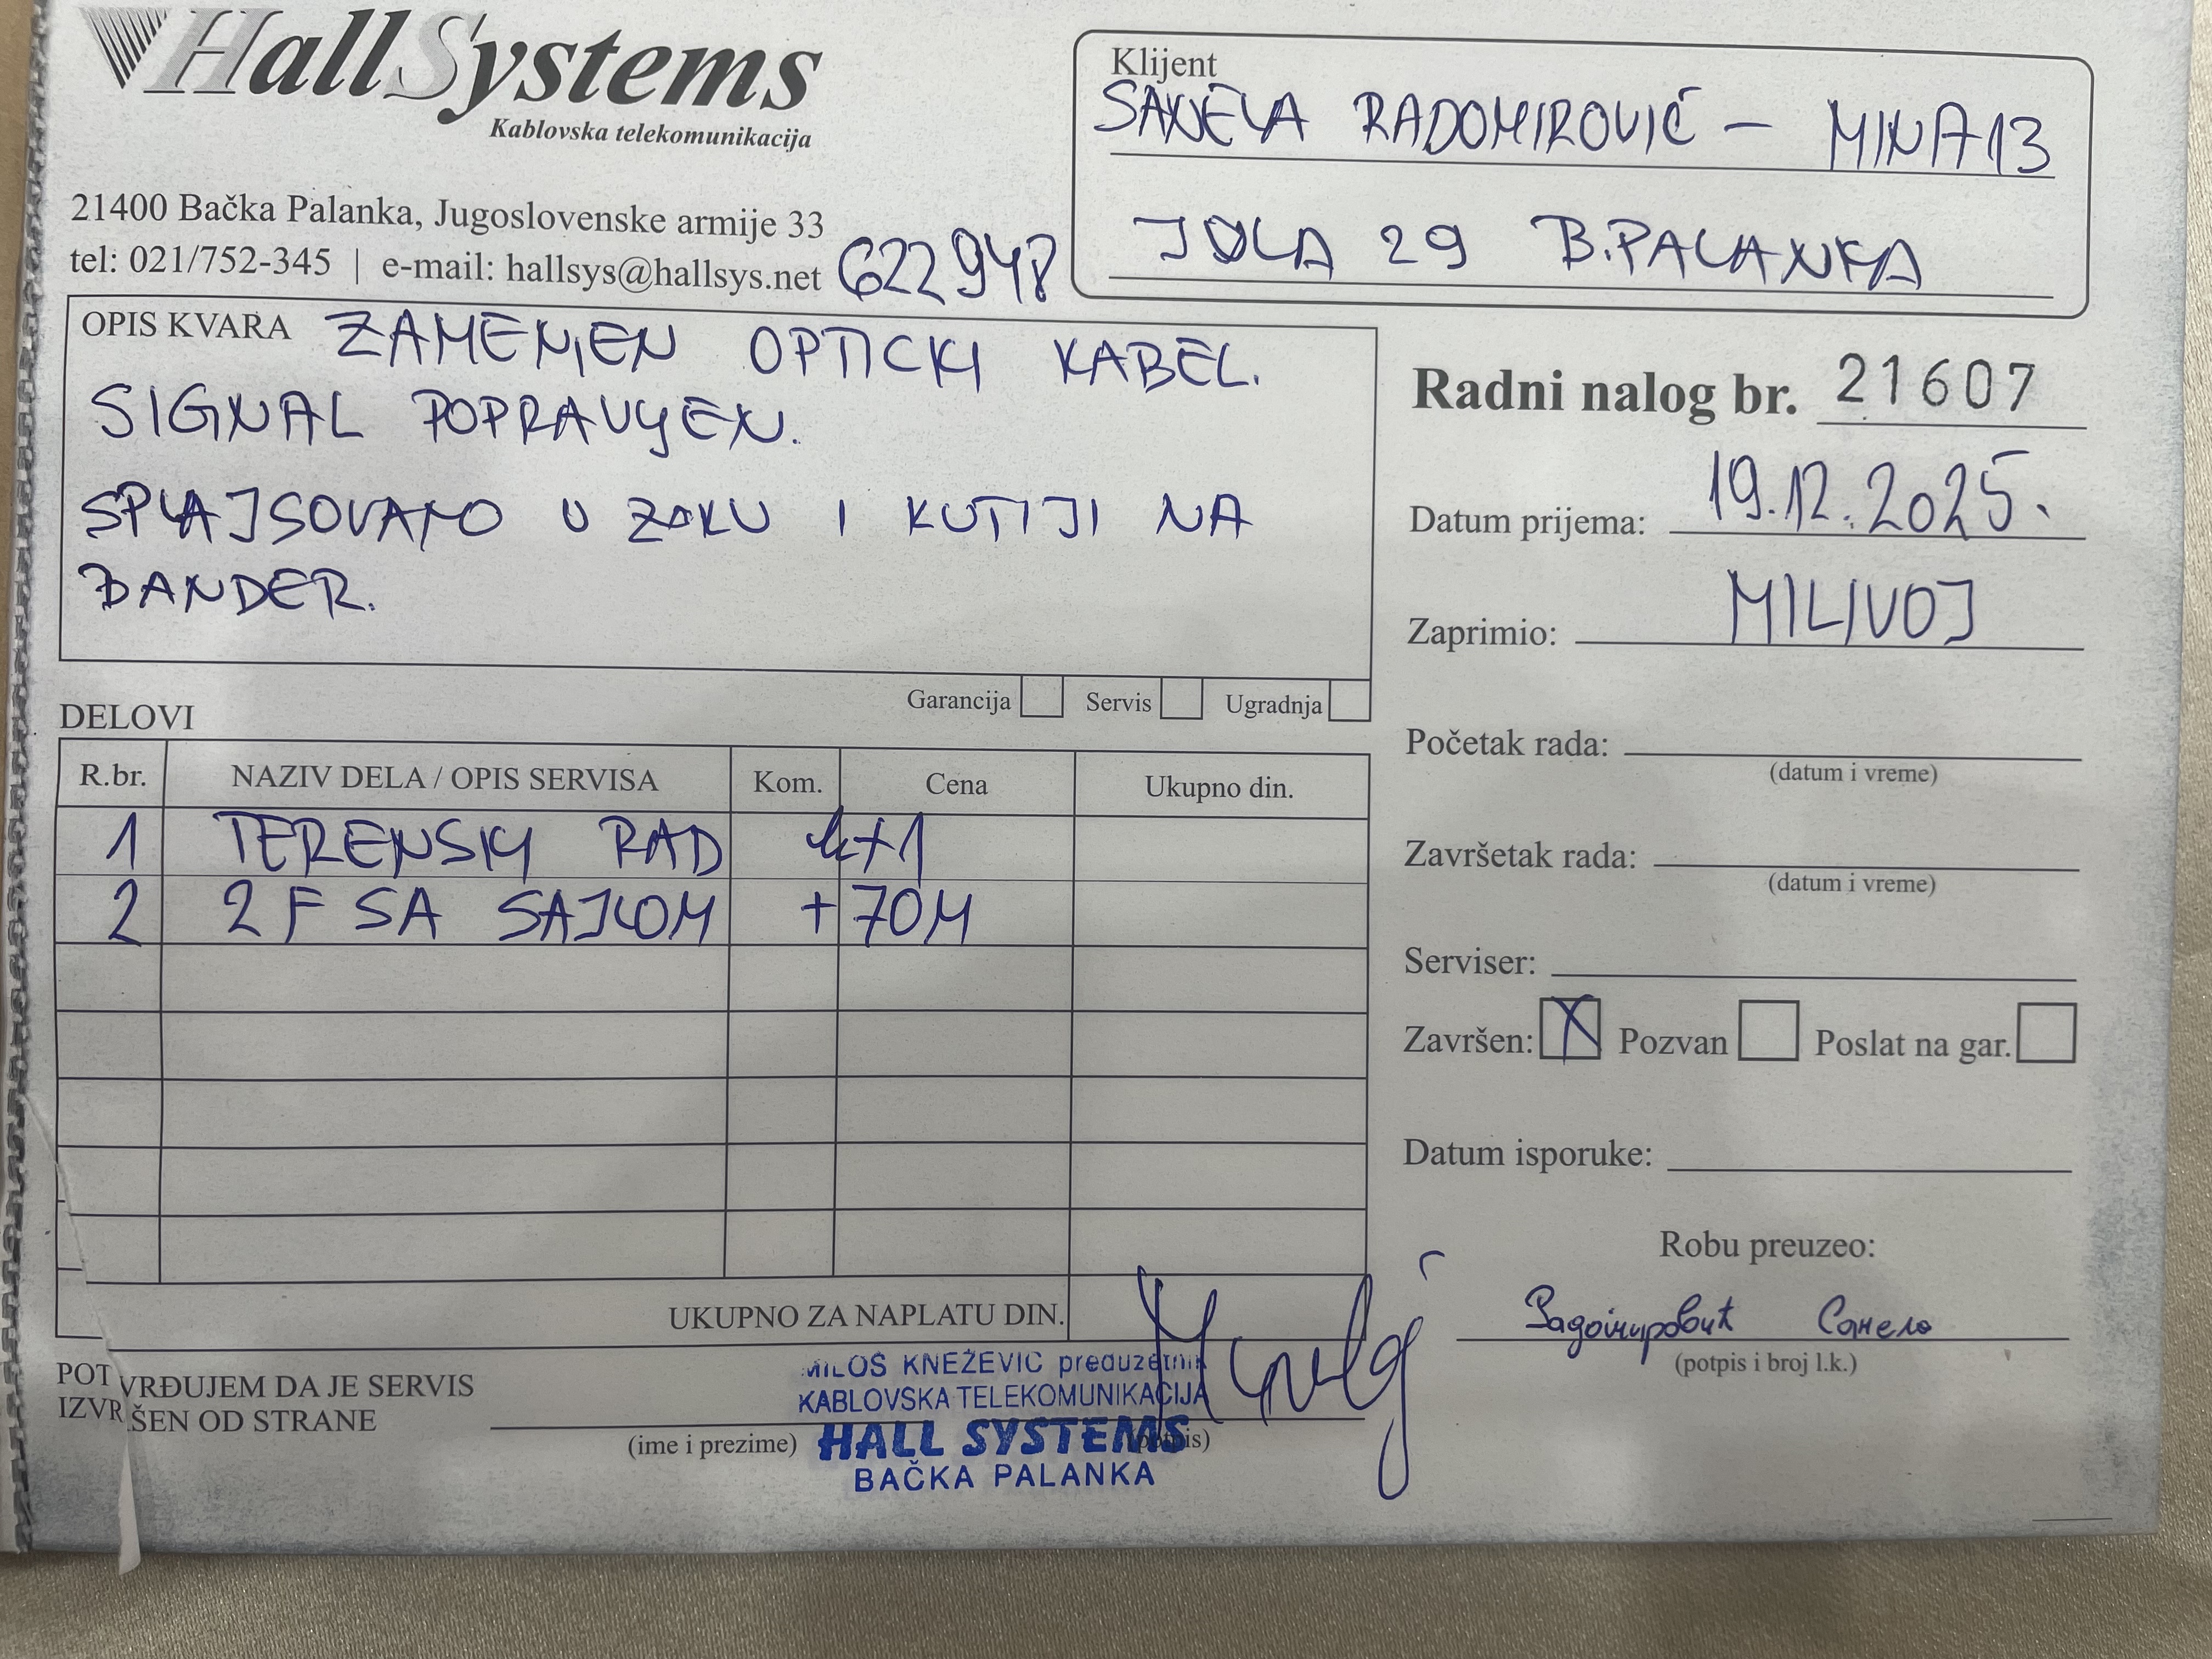 HallSystems
Kablovska telekomunikacija
21400 Bačka Palanka, Jugoslovenske armije 33
tel: 021/752-345 | e-mail: hallsys@hallsys.net
622948
Klijent
SANELA RADOMIROVIĆ – MINA13
JULA 29 B.PALANKA
OPIS KVARA ZAMENJEN OPTICKI KABEL.
SIGNAL POPRAVLJEN.
SPLAJSOVANO U ZOKU I KUTIJI NA
BANDER.
Garancija Servis Ugradnja
Radni nalog br. 21607
Datum prijema: 19.12.2025.
Zaprimio: MILIVOJ
Početak rada:
(datum i vreme)
Završetak rada:
(datum i vreme)
Serviser:
Završen: X Pozvan Poslat na gar.
Datum isporuke:
Robu preuzeo:
Радомировић Санела
(potpis i broj l.k.)
DELOVI
R.br. NAZIV DELA / OPIS SERVISA Kom. Cena Ukupno din.
1 TERENSKI RAD +1
2 2F SA SAJLOM +70M
UKUPNO ZA NAPLATU DIN.
POTVRĐUJEM DA JE SERVIS
IZVRŠEN OD STRANE
(ime i prezime) (potpis)
MILOŠ KNEŽEVIĆ preduzetnik
KABLOVSKA TELEKOMUNIKACIJA
HALL SYSTEMS
BAČKA PALANKA